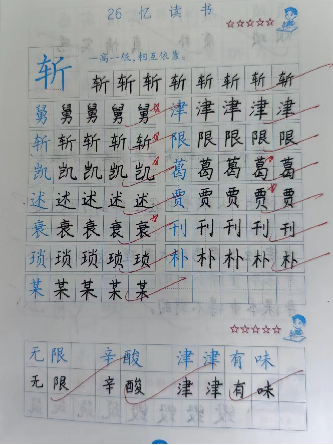 26 忆读书
斩 一高一低,相互依靠。
斩斩斩斩斩斩斩斩
舅舅舅舅舅 津津津津津
斩斩斩斩斩 限限限限限
凯凯凯凯凯 葛葛葛葛葛
述述述述述 贾贾贾贾贾
衰衰衰衰衰 刊刊刊刊刊
琐琐琐琐琐 朴朴朴朴朴
某某某某某
无限 辛酸 津津有味
无限 辛酸 津津有味